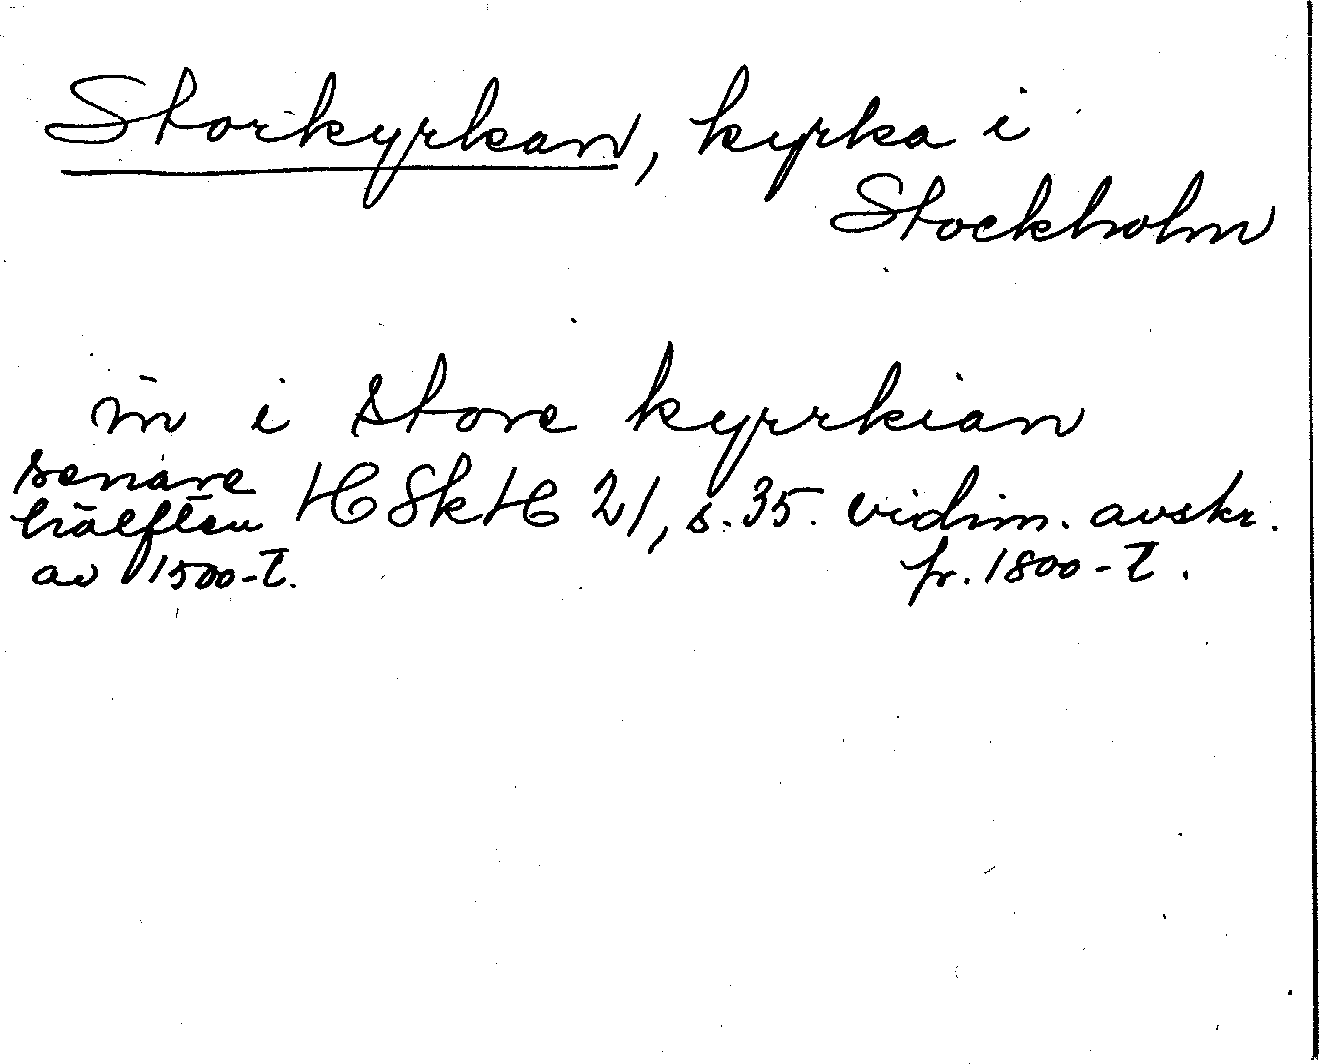 Storkyrkan, kyrka i
Stockholm
in i store kyrrkian
senare
hälften HSkH 21, s. 35. vidim. avskr.
av 1500-t. fr. 1800-t.